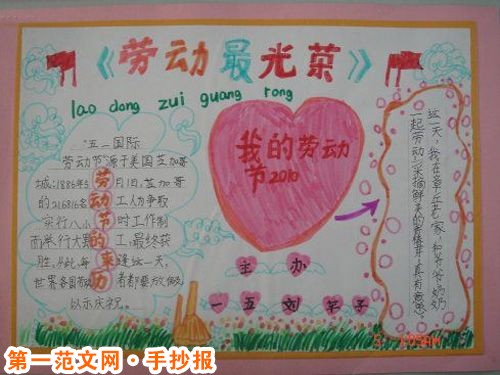 《劳动最光荣》
lao dong zui guang rong
"五一国际
劳动节"源于美国芝加哥
城.1886年5月1日,芝加哥
的216816名工人为争取
实行八小时工作制
而举行大罢工,最终获
胜.从此,每逢这一天,
世界各国劳动者都要
以示庆祝.
劳动节的来历
我的劳动
节2010
主办
一五刘芊子
这一天,我在章丘老家,和爷爷奶奶
一起劳动:采摘鲜美的香椿芽,真有意思.
第一范文网·手抄报